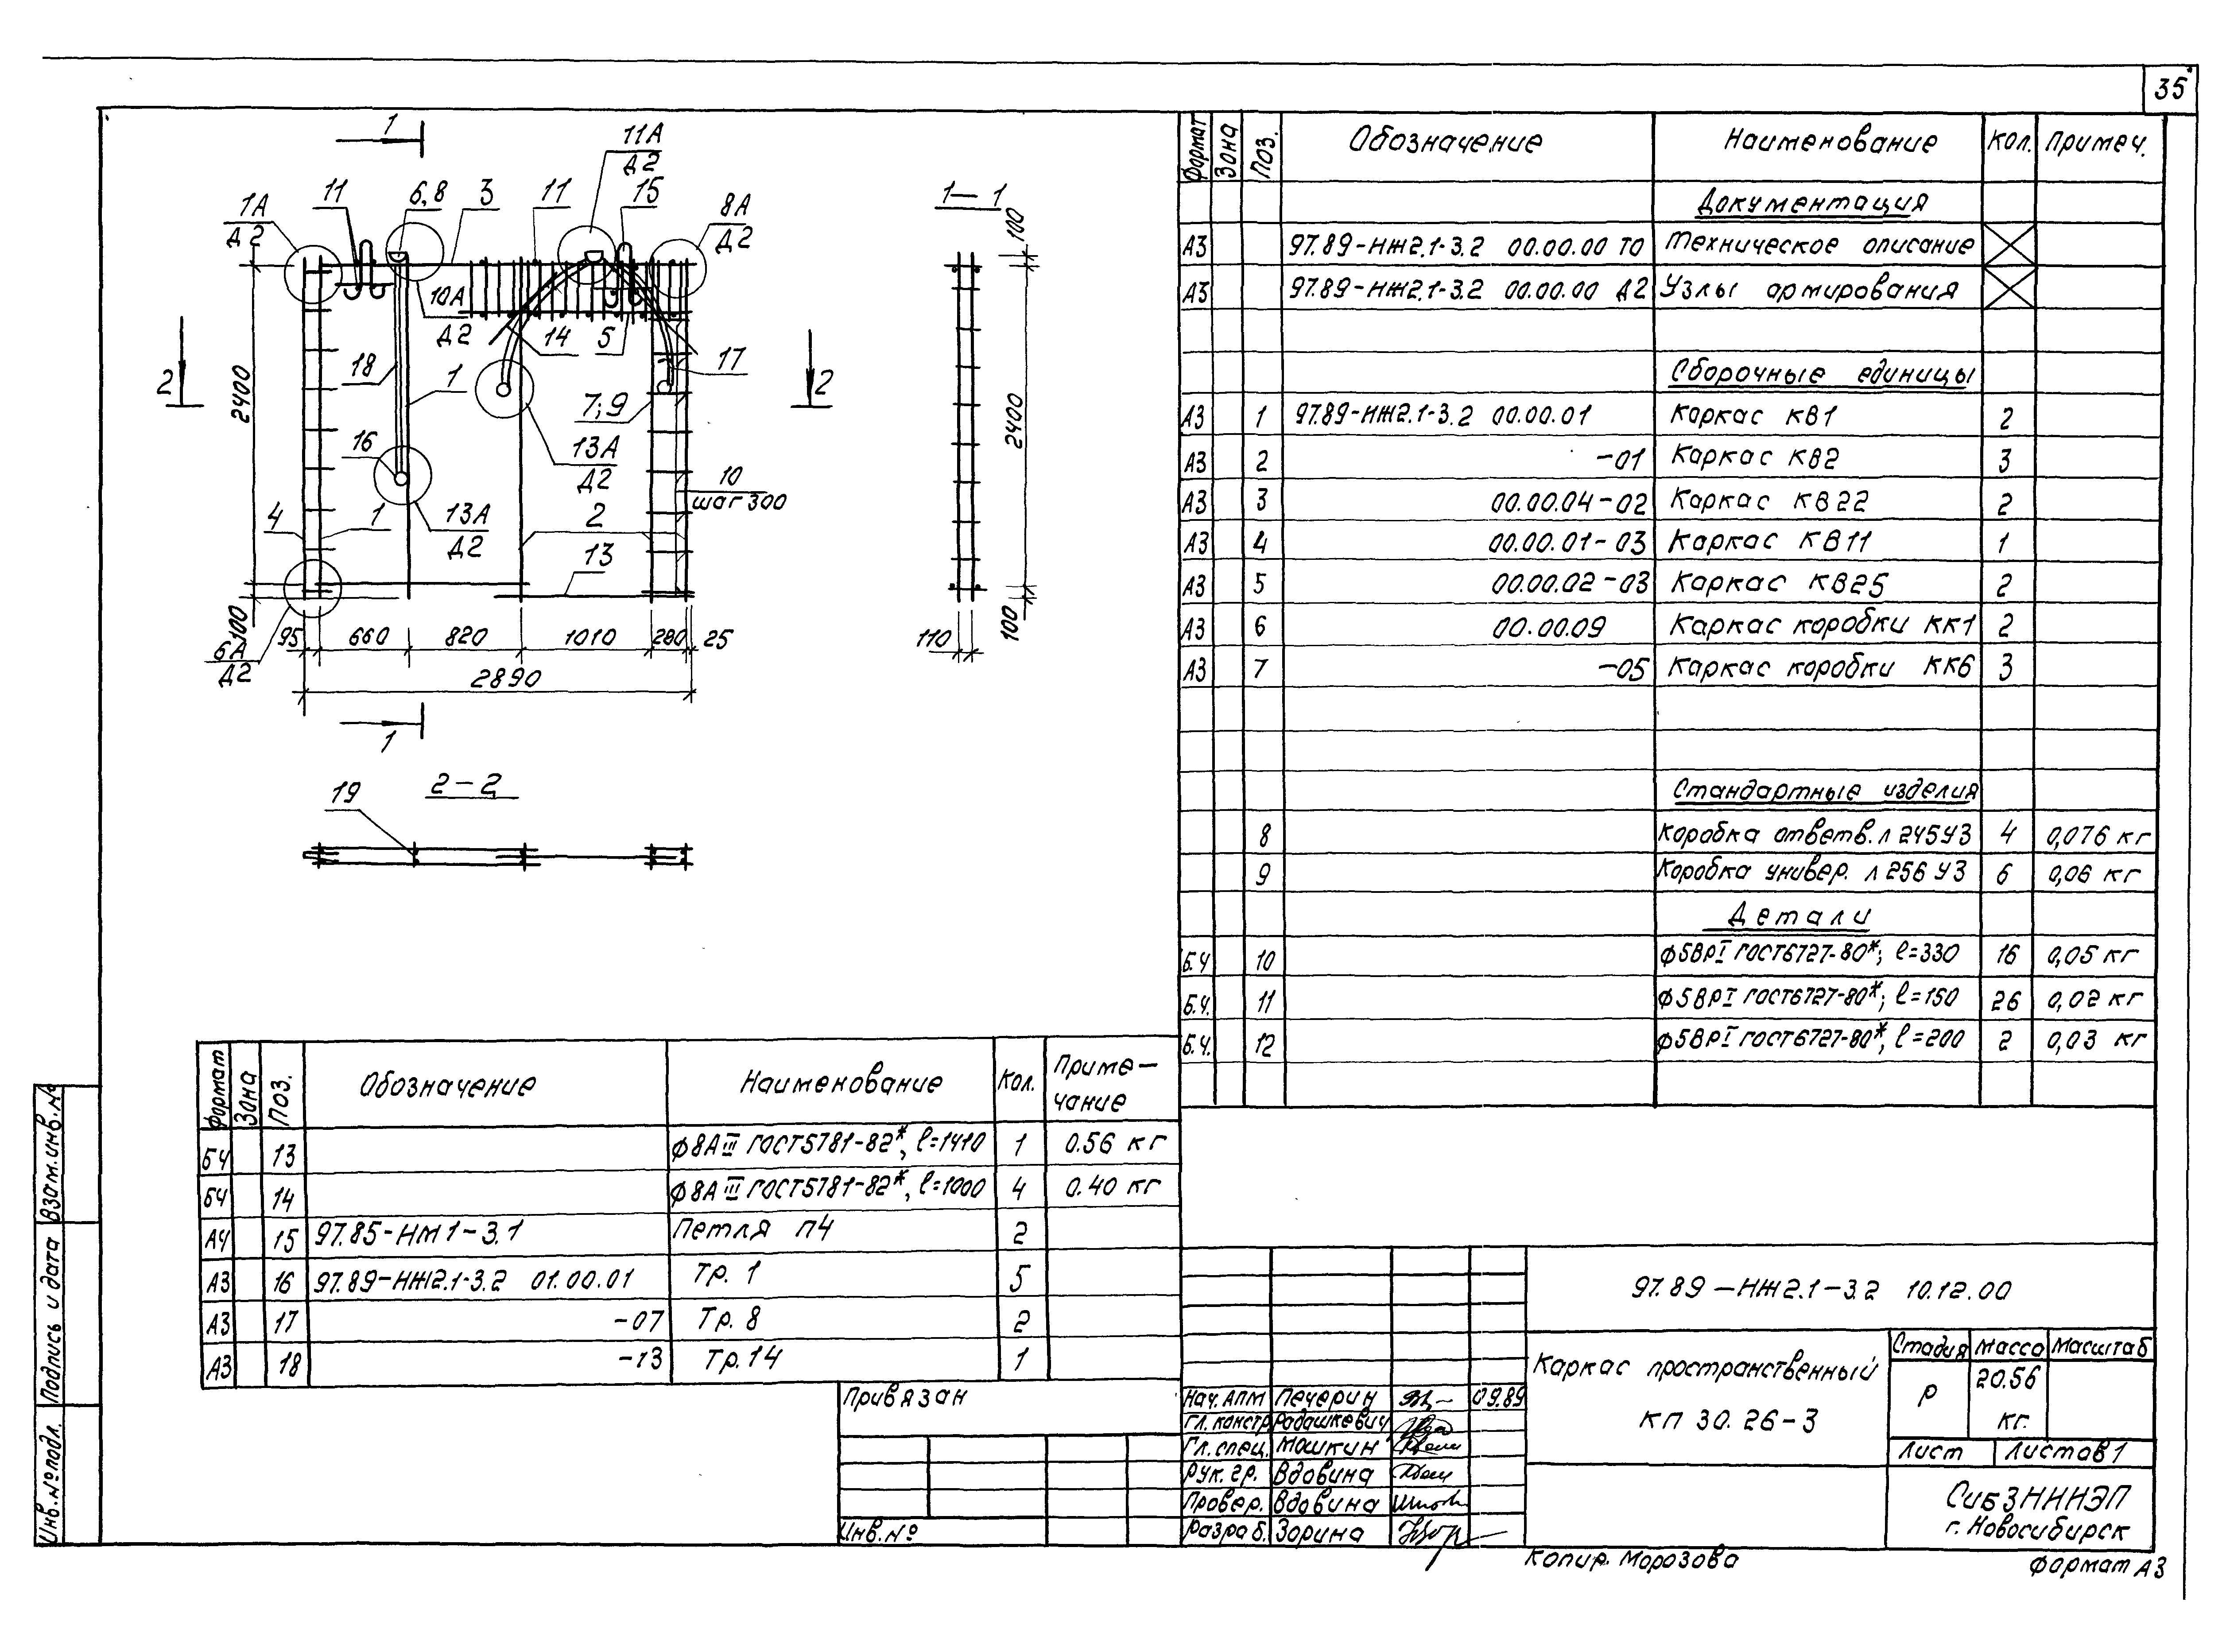 35
1
11А
Д2
11
6,8
3
11
15
1А
Д2
8А
Д2
1-1
100
10А
Д2
14
5
17
18
1
2
2
2400
2400
7;9
16
13А
Д2
10
шаг 300
4
1
13А
Д2
2
13
100
100
95
660
820
1010
280
25
110
6А
Д2
2890
1
2-2
19
Формат Зона Поз. Обозначение Наименование Кол. Примеч.
Документация
А3 97.89-НЖ2.1-3.2 00.00.00 ТО Техническое описание
А3 97.89-НЖ2.1-3.2 00.00.00 Д2 Узлы армирования
Сборочные единицы
А3 1 97.89-НЖ2.1-3.2 00.00.01 Каркас КВ1 2
А3 2 -01 Каркас КВ2 3
А3 3 00.00.04-02 Каркас КВ22 2
А3 4 00.00.01-03 Каркас КВ11 1
А3 5 00.00.02-03 Каркас КВ25 2
А3 6 00.00.09 Каркас коробки КК1 2
А3 7 -05 Каркас коробки КК6 3
Стандартные изделия
8 Коробка ответв. Л 245У3 4 0,076 кг
9 Коробка универ. Л 256 У3 6 0,06 кг
Детали
Б.Ч 10 ф5ВрI ГОСТ6727-80*; l=330 16 0,05 кг
Б.Ч. 11 ф5ВрI ГОСТ6727-80*; l=150 26 0,02 кг
Б.Ч. 12 ф5ВрI ГОСТ6727-80*, l=200 2 0,03 кг
Формат Зона Поз. Обозначение Наименование Кол. Приме-
чание
БЧ 13 ф8АIII ГОСТ5781-82*, l=1410 1 0.56 кг
БЧ 14 ф8АIII ГОСТ5781-82*, l=1000 4 0.40 кг
А4 15 97.85-НМ1-3.1 Петля П4 2
А3 16 97.89-НЖ2.1-3.2 01.00.01 Тр. 1 5
А3 17 -07 Тр. 8 2
А3 18 -13 Тр. 14 1
Привязан
Инв.№
Взам.инв.№
Подпись и дата
Инв.№ подл.
97.89-НЖ2.1-3.2 10.12.00
Каркас пространственный
КП 30.26-3
Стадия Масса Масштаб
Р 20.56
кг.
Лист Листов 1
Нач. АПМ Печерин 09.89
Гл. констр. Радашкевич
Гл. спец. Мошкин
Рук. гр. Вдовина
Провер. Вдовина
Разраб. Зорина
СибЗНИИЭП
г. Новосибирск
Копир. Морозова
Формат А3